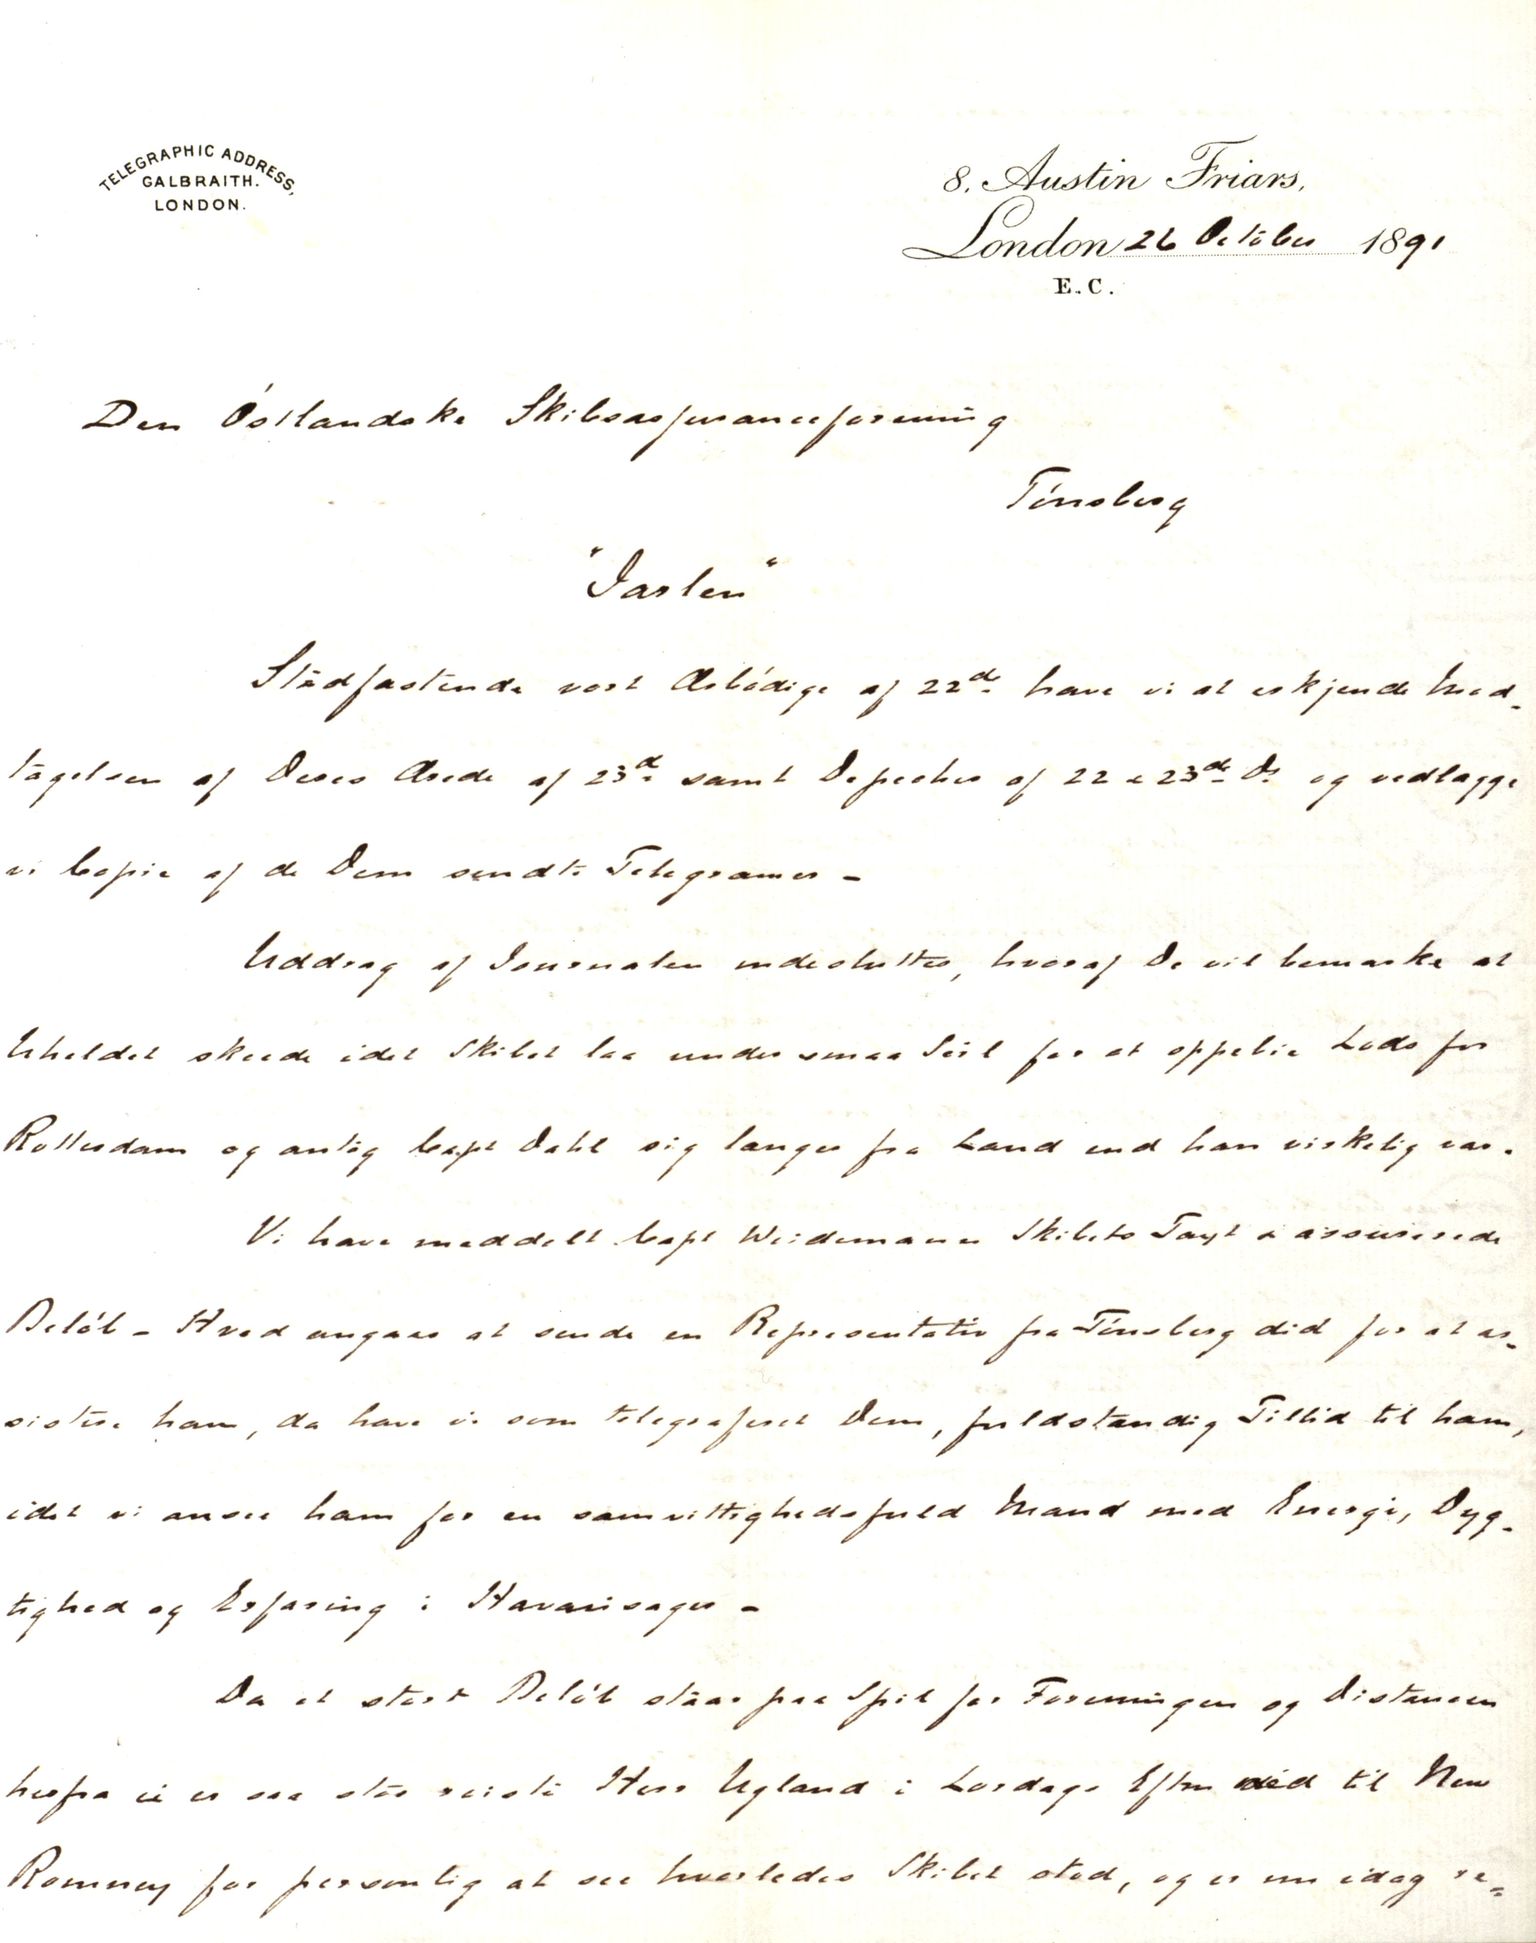 TELEGRAPHIC ADDRESS,
GALBRAITH.
LONDON.
8. Austin Friars,
London 26 October 1891
E.C.
Den Östlandske Skibsassuranceforening
Tönsberg
"Jarlen"
Stadfæstende vort Ærbödige af 22de have vi at erkjende Mod-
tagelsen af Deres Ærede af 23de samt Depecher af 22 & 23de Ds og vedlægge
vi Copie af de Dem sendte Telegramer -
Uddrag af Journalen indesluttes, hvoraf De vil bemærke at
Uheldet skeede idet Skibet laa under smaa Seil for at oppebie Lods for
Rotterdam og antog Capt Dahl sig længer fra Land end han virkelig var.
Vi have meddelt Capt Weidemann Skibets Taxt & assurerede
Belöb - Hvad angaar at sende en Representativ fra Tönsberg did for at as-
sistere ham, da have vi som telegraferet Dem, fuldstændig Tiltid til ham,
idet vi ansee ham for en samvittighedsfuld Mand med Energi, Dyg-
tighed og Erfaring i Havarisager -
Da et stort Belöb staar paa Spil for Foreningen og Distancen
herfra ei er saa stor reiste Herr Ugland i Lördags Eftm did til New
Romney for personlig at see hvorledes Skibet stod, og er nu idag re-